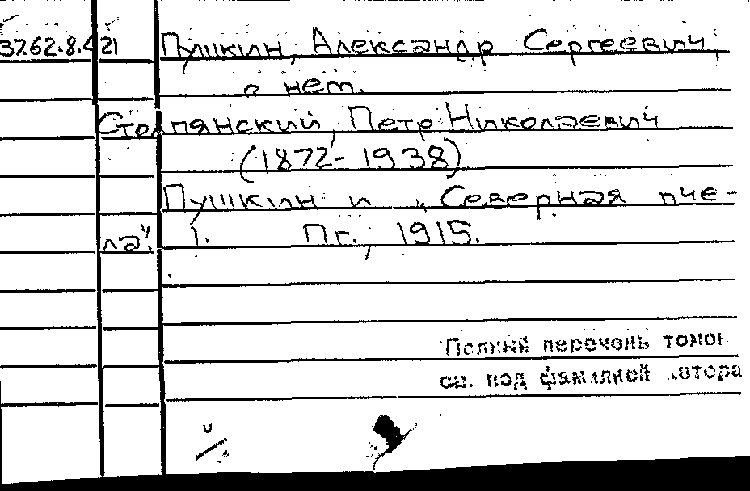 3762.8.421 Пушкин, Александр Сергеевич,
о нем.
Столпянский, Петр Николаевич
(1872-1938)
Пушкин и „Северная пче-
ла". 1. Пг., 1915.
Полный перечень томов
см. под фамилией автора